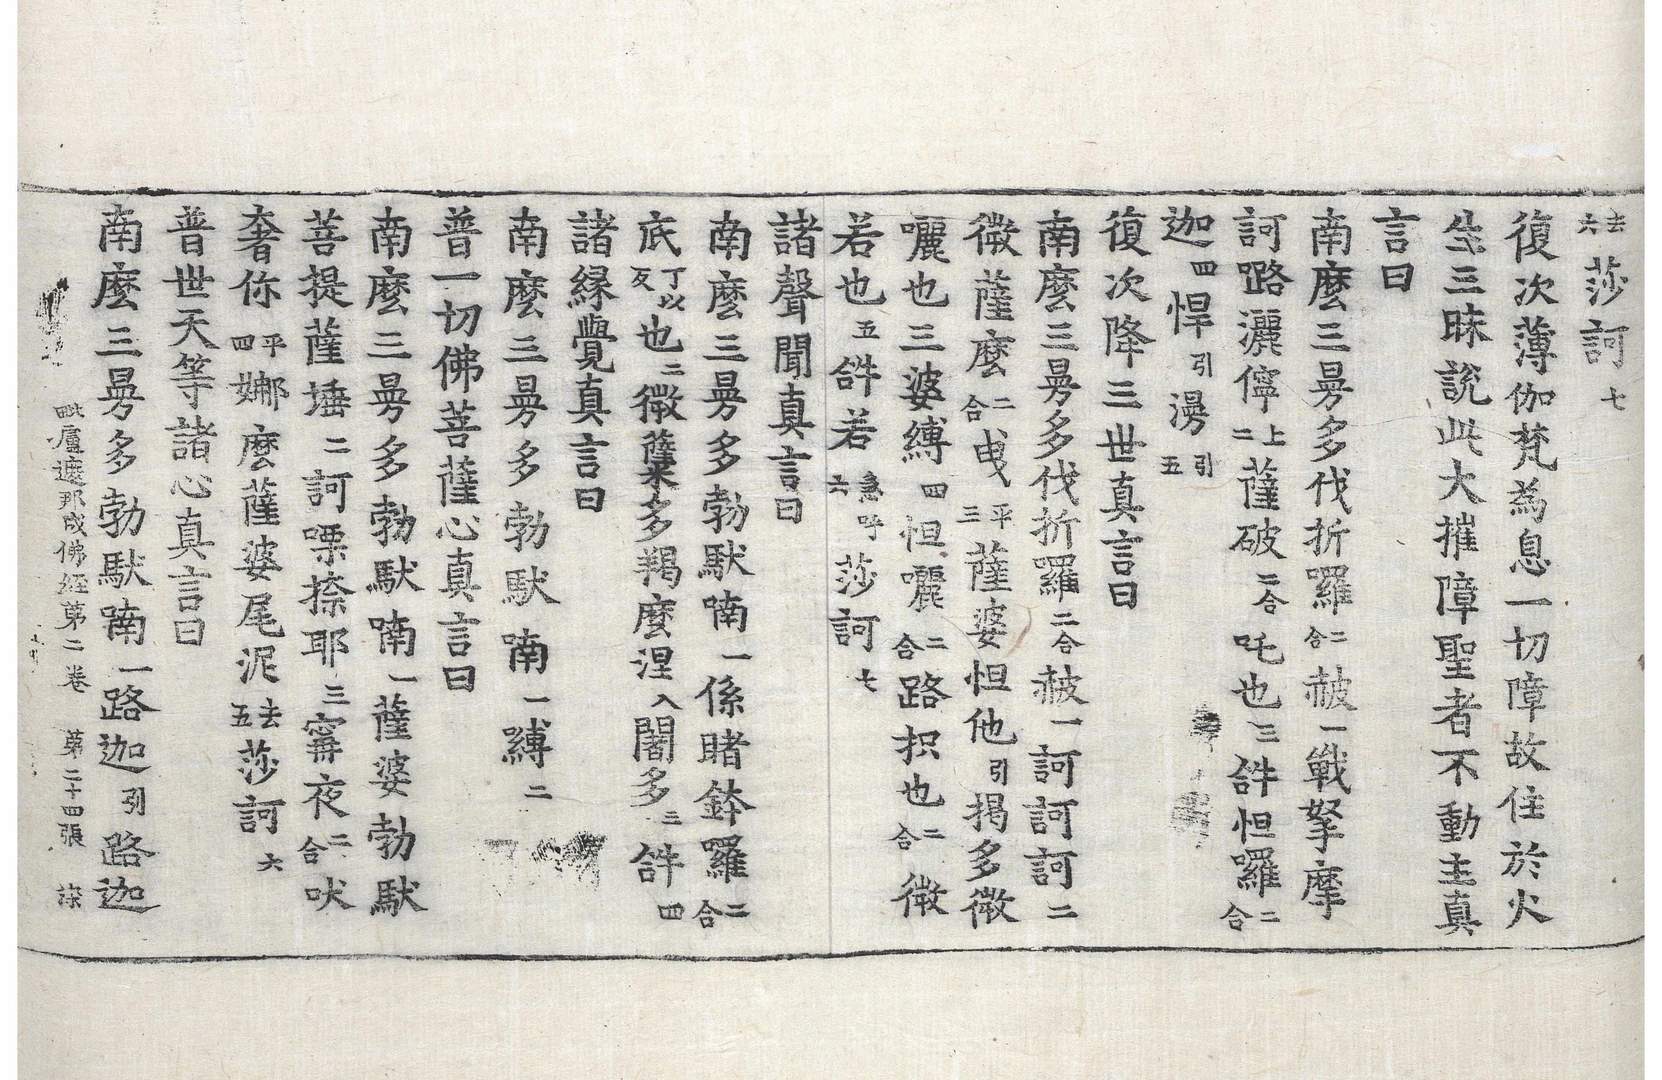 去六莎訶七
復次薄伽梵為息一切障故住於火
生三昧說此大摧障聖者不動主真
言曰
南麼三曼多伐折囉二合赧一戰拏摩
訶𡀔灑儜上二薩破二合吒也三𤙖怛羅二合
迦四悍引漫引五
復次降三世真言曰
南麼三曼多伐折囉二合赧一訶訶訶二
微薩麼二合曳平三薩婆怛他引揭多微
囇也三婆縛四怛囇二合路枳也二合微
若也五𤙖若急呼六莎訶七
諸聲聞真言曰
南麼三曼多勃馱喃一係睹鉢羅二合
底丁以反也二微薩多羯麼涅入闍多三𤙖四
諸緣覺真言曰
南麼三曼多勃馱喃一縛二
普一切佛菩薩心真言曰
南麼三曼多勃馱喃一薩婆勃馱
菩提薩埵二訶㗚捺耶三寧夜二合吠
奢你平四娜麼薩婆尾泥去五莎訶六
普世天等諸心真言曰
南麼三曼多勃馱喃一路迦引路迦
毗盧遮那成佛經第二卷 第二十四張 染